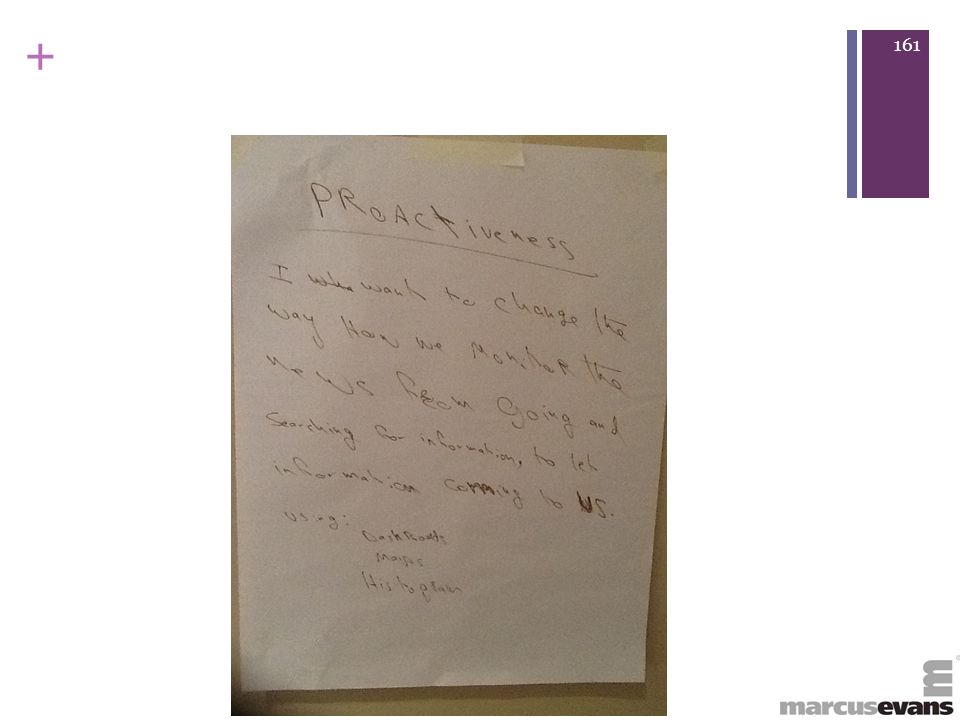 +
161
PROActiveness
I want to change the
way How we Monitor the
news from going and
Searching for information, to let
information coming to US.
using:
Dashboards
Histogram
marcusevans